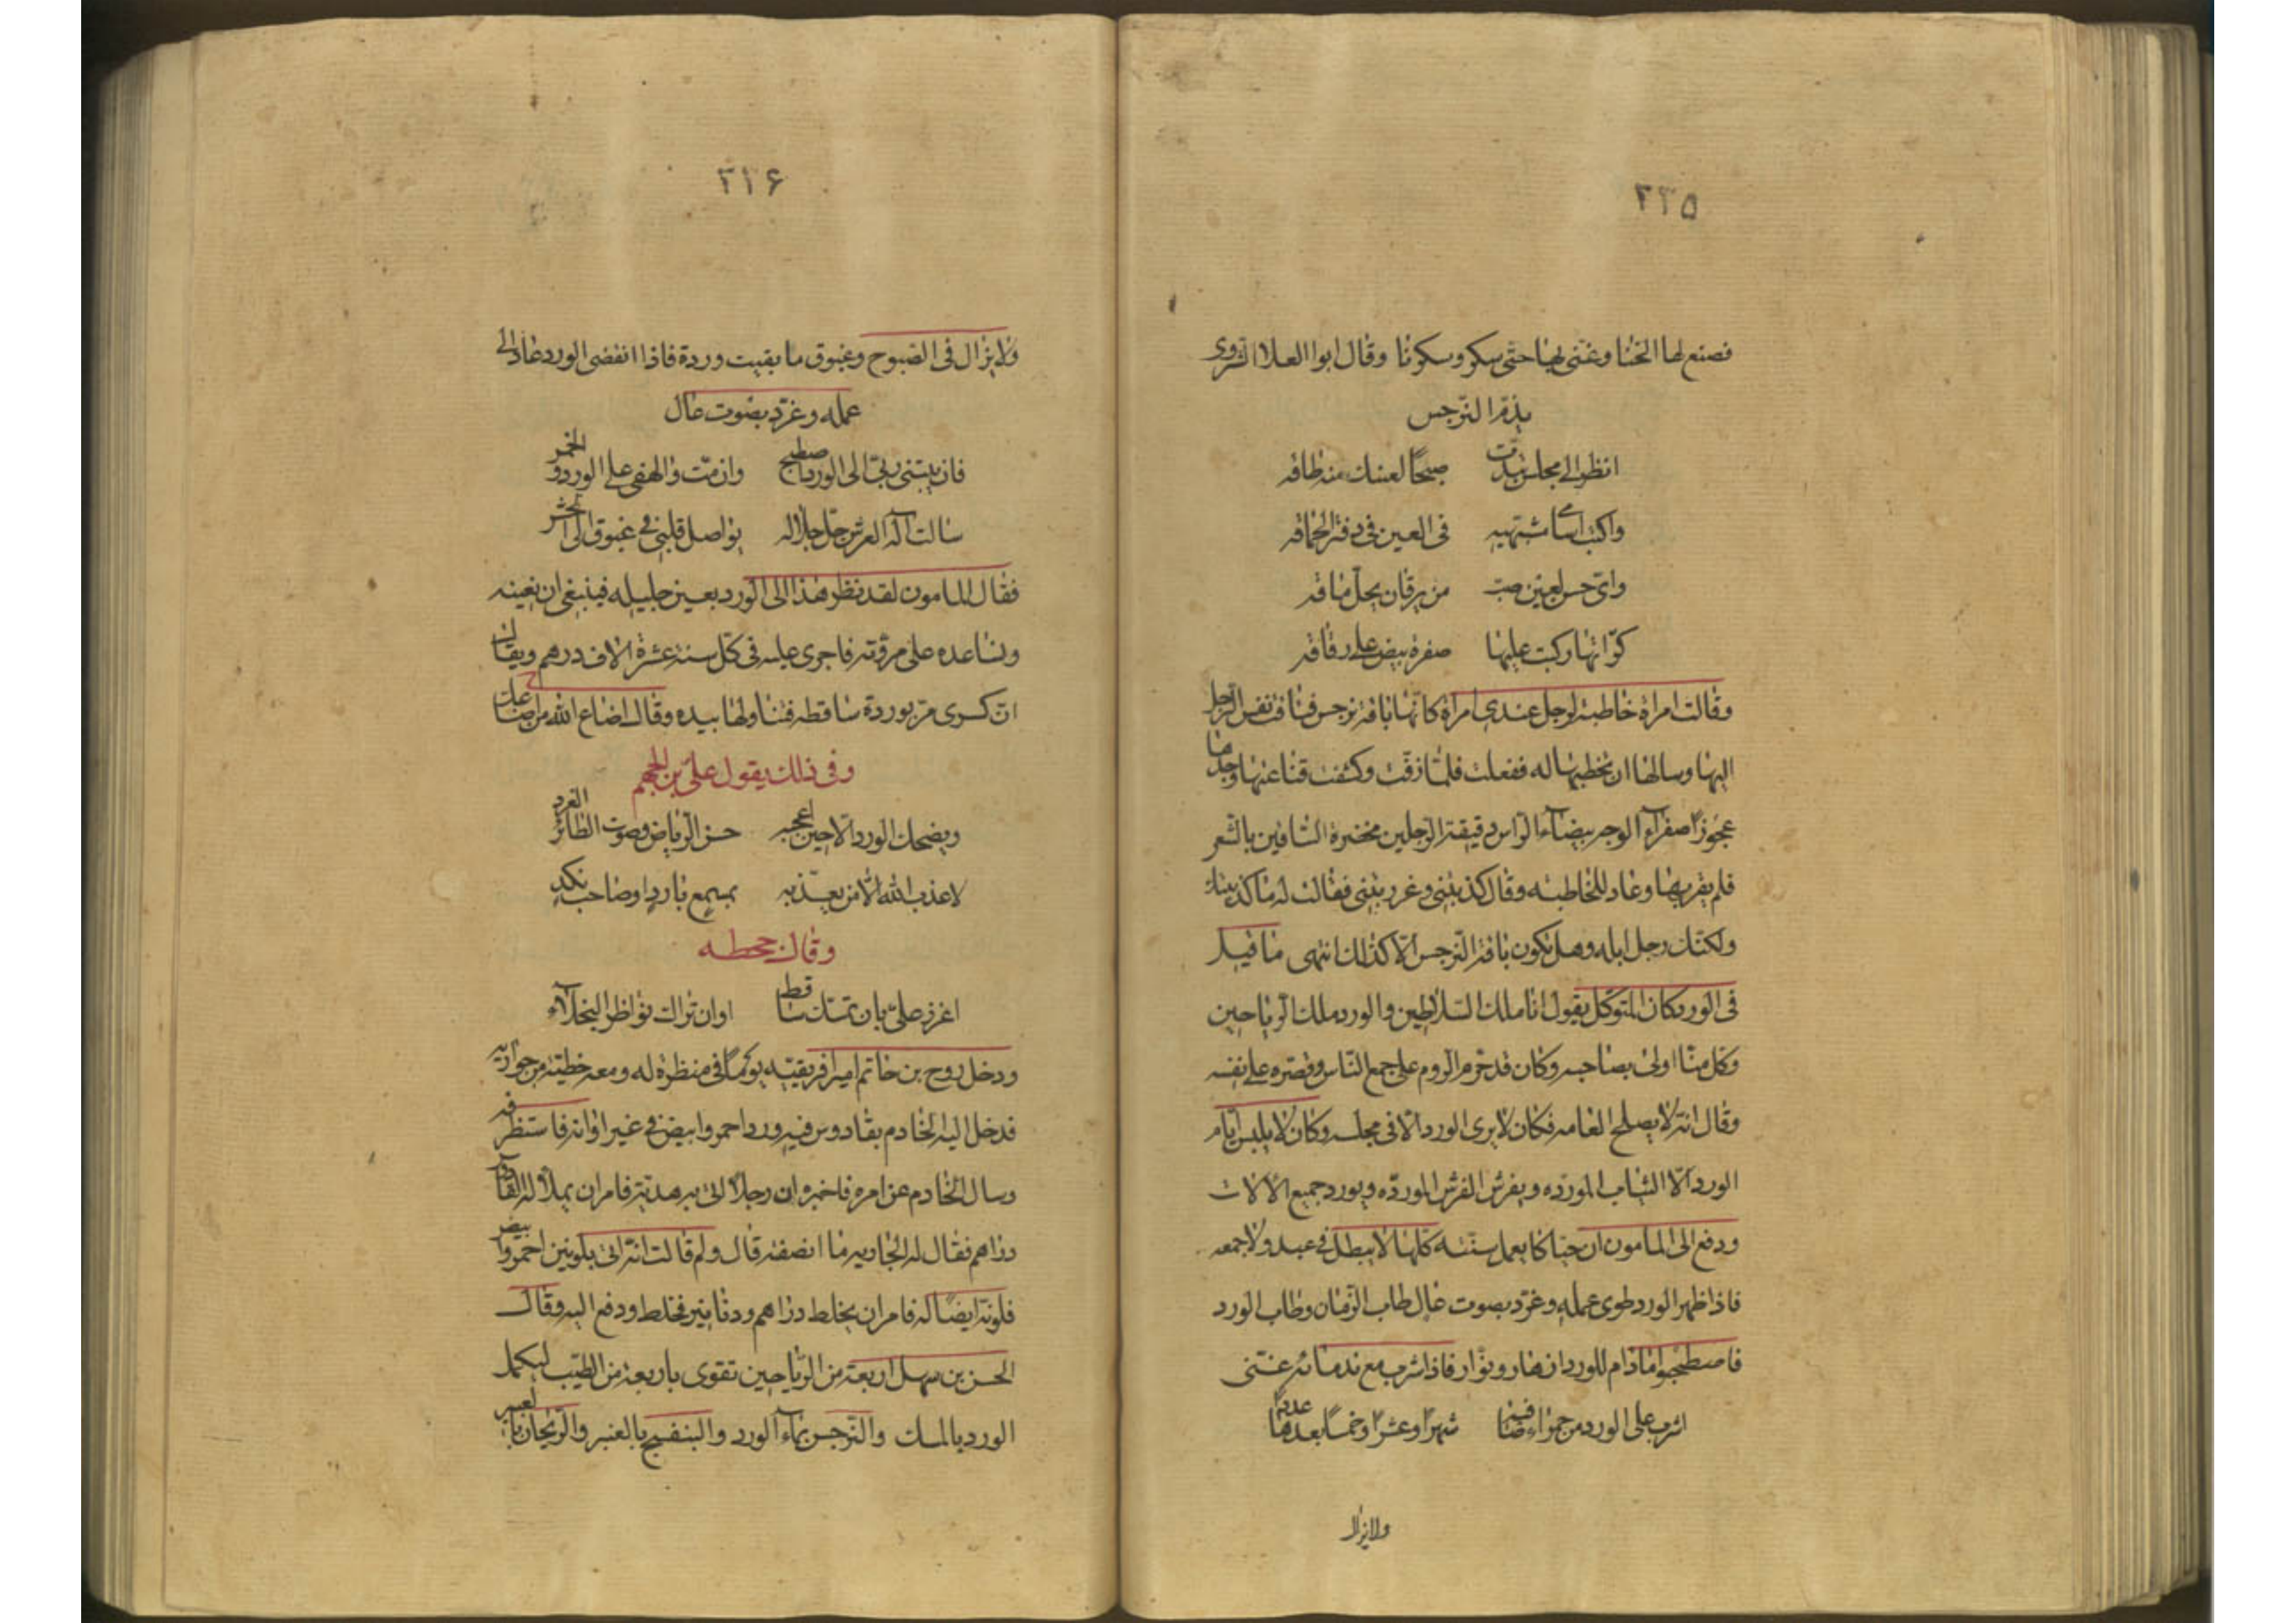 ۲۳۵
فصنع لها الحنا وغنى بها حتى سكر وسكرنا وقال ابوا العلا السروى
يذم النرجس
انظر الى مجلس تبدت صبحا لعينك منه طاقه
واكتب اسامى مشتهيه فى العين فى دفتر الحماقه
واى حسن لعين صب من يرقان يحل ماقه
كراثها ركبت عليها صفرة بيض على رقاقه
وقالت امراة خاطبة لرجل عندى امراة كانها باقة نرجس فتاقت نفس الرجل
اليها وسالها ان تخطبها له ففعلت فلما زفت وكشفت قناعها وجدها
عجوزا صفراء الوجه بيضاء الراس دقيقة الرجلين مخضرة الساقين بالشعر
فلم يقربها وعاد للخاطبه وقال كذبتنى وغررتنى فقالت له ما كذبتك
ولكنك رجل ابله وهل تكون باقة النرجس الا كذلك انتهى ما قيل
فى الورد كان المتوكل يقول انا ملك السلاطين والورد ملك الرياحين
وكل منا اولى بصاحبه وكان قد حرم الروم على جمع الناس وقصره على نفسه
وقال انه لا يصلح العامه فكان لا يرى الورد الا فى مجلسه وكان لا يلبس ايام
الورد الا الثياب المورده ويفرش الفرش المورده ويورد جميع الالات
ودفع الى المامون ان حباكا يعمل سنته كلها لا يبطل فى عيد ولا جمعه
فاذا ظهر الورد طوى عمله وغرد بصوت عال طاب الزمان وطاب الورد
فاصطبحوا ما دام للورد ازهار ونوار فاذا شرب مع ندمائه غنى
اشرب على الورد من حمراء صافية شهرا وعشرا وخمسا بعدها عددا
ولا يزال
۲۳۶
ولا يزال فى الصبوح وغبوق ما بقيت وردة فاذا انقضى الورد عاد الى
عمله وغرد بصوت عال
فان يبقنى ربى الى الورد اصطبح وان مت والهفى على الورد والخمر
سالت اله العرش جل جلاله يواصل قلبى فى غبوق الى الحشر
فقال المامون لقد نظر هذا الى الورد بعين جليله فينبغى ان نعينه
ونساعده على مروته فاجرى عليه فى كل سنة عشرة الاف درهم ويقال
ان كسرى مر بوردة ساقطه فتناولها بيده وقال اضاع الله من اضاعك
وفى ذلك يقول على بن الجهم
ويضحك الورد الا حين اعجبه حسن الرياض وصوت الطائر الغرد
لا عذب الله الا من يعذبه بمسمع بارد او صاحب نكد
وقال جحظه
اعزز على بان تمسك ساقط او ان تراك نواظر البخلاء
ودخل روح بن حاتم امير افريقيه يوما فى منظرة له ومعه حظية من جواريه
فدخل اليه الخادم بقادوس فيه ورد احمر وابيض فى غير اوانه فاستظرفه
وسال الخادم عن امره فاخبره ان رجلا اتى به هدية فامر ان يملا له القادوس
دراهم فقال له الجاريه ما انصفته قال ولم قالت انه اتى بلونين احمر وابيض
فلونه ايضا له فامر ان يخلط دراهم ودنانير فخلط ودفع اليه وقال
الحسن بن سهل اربعة من الرياحين تقوى باربعة من الطيب ليكمل
الورد بالمسك والنرجس بماء الورد والبنفسج بالعنبر والريحان بالعبير